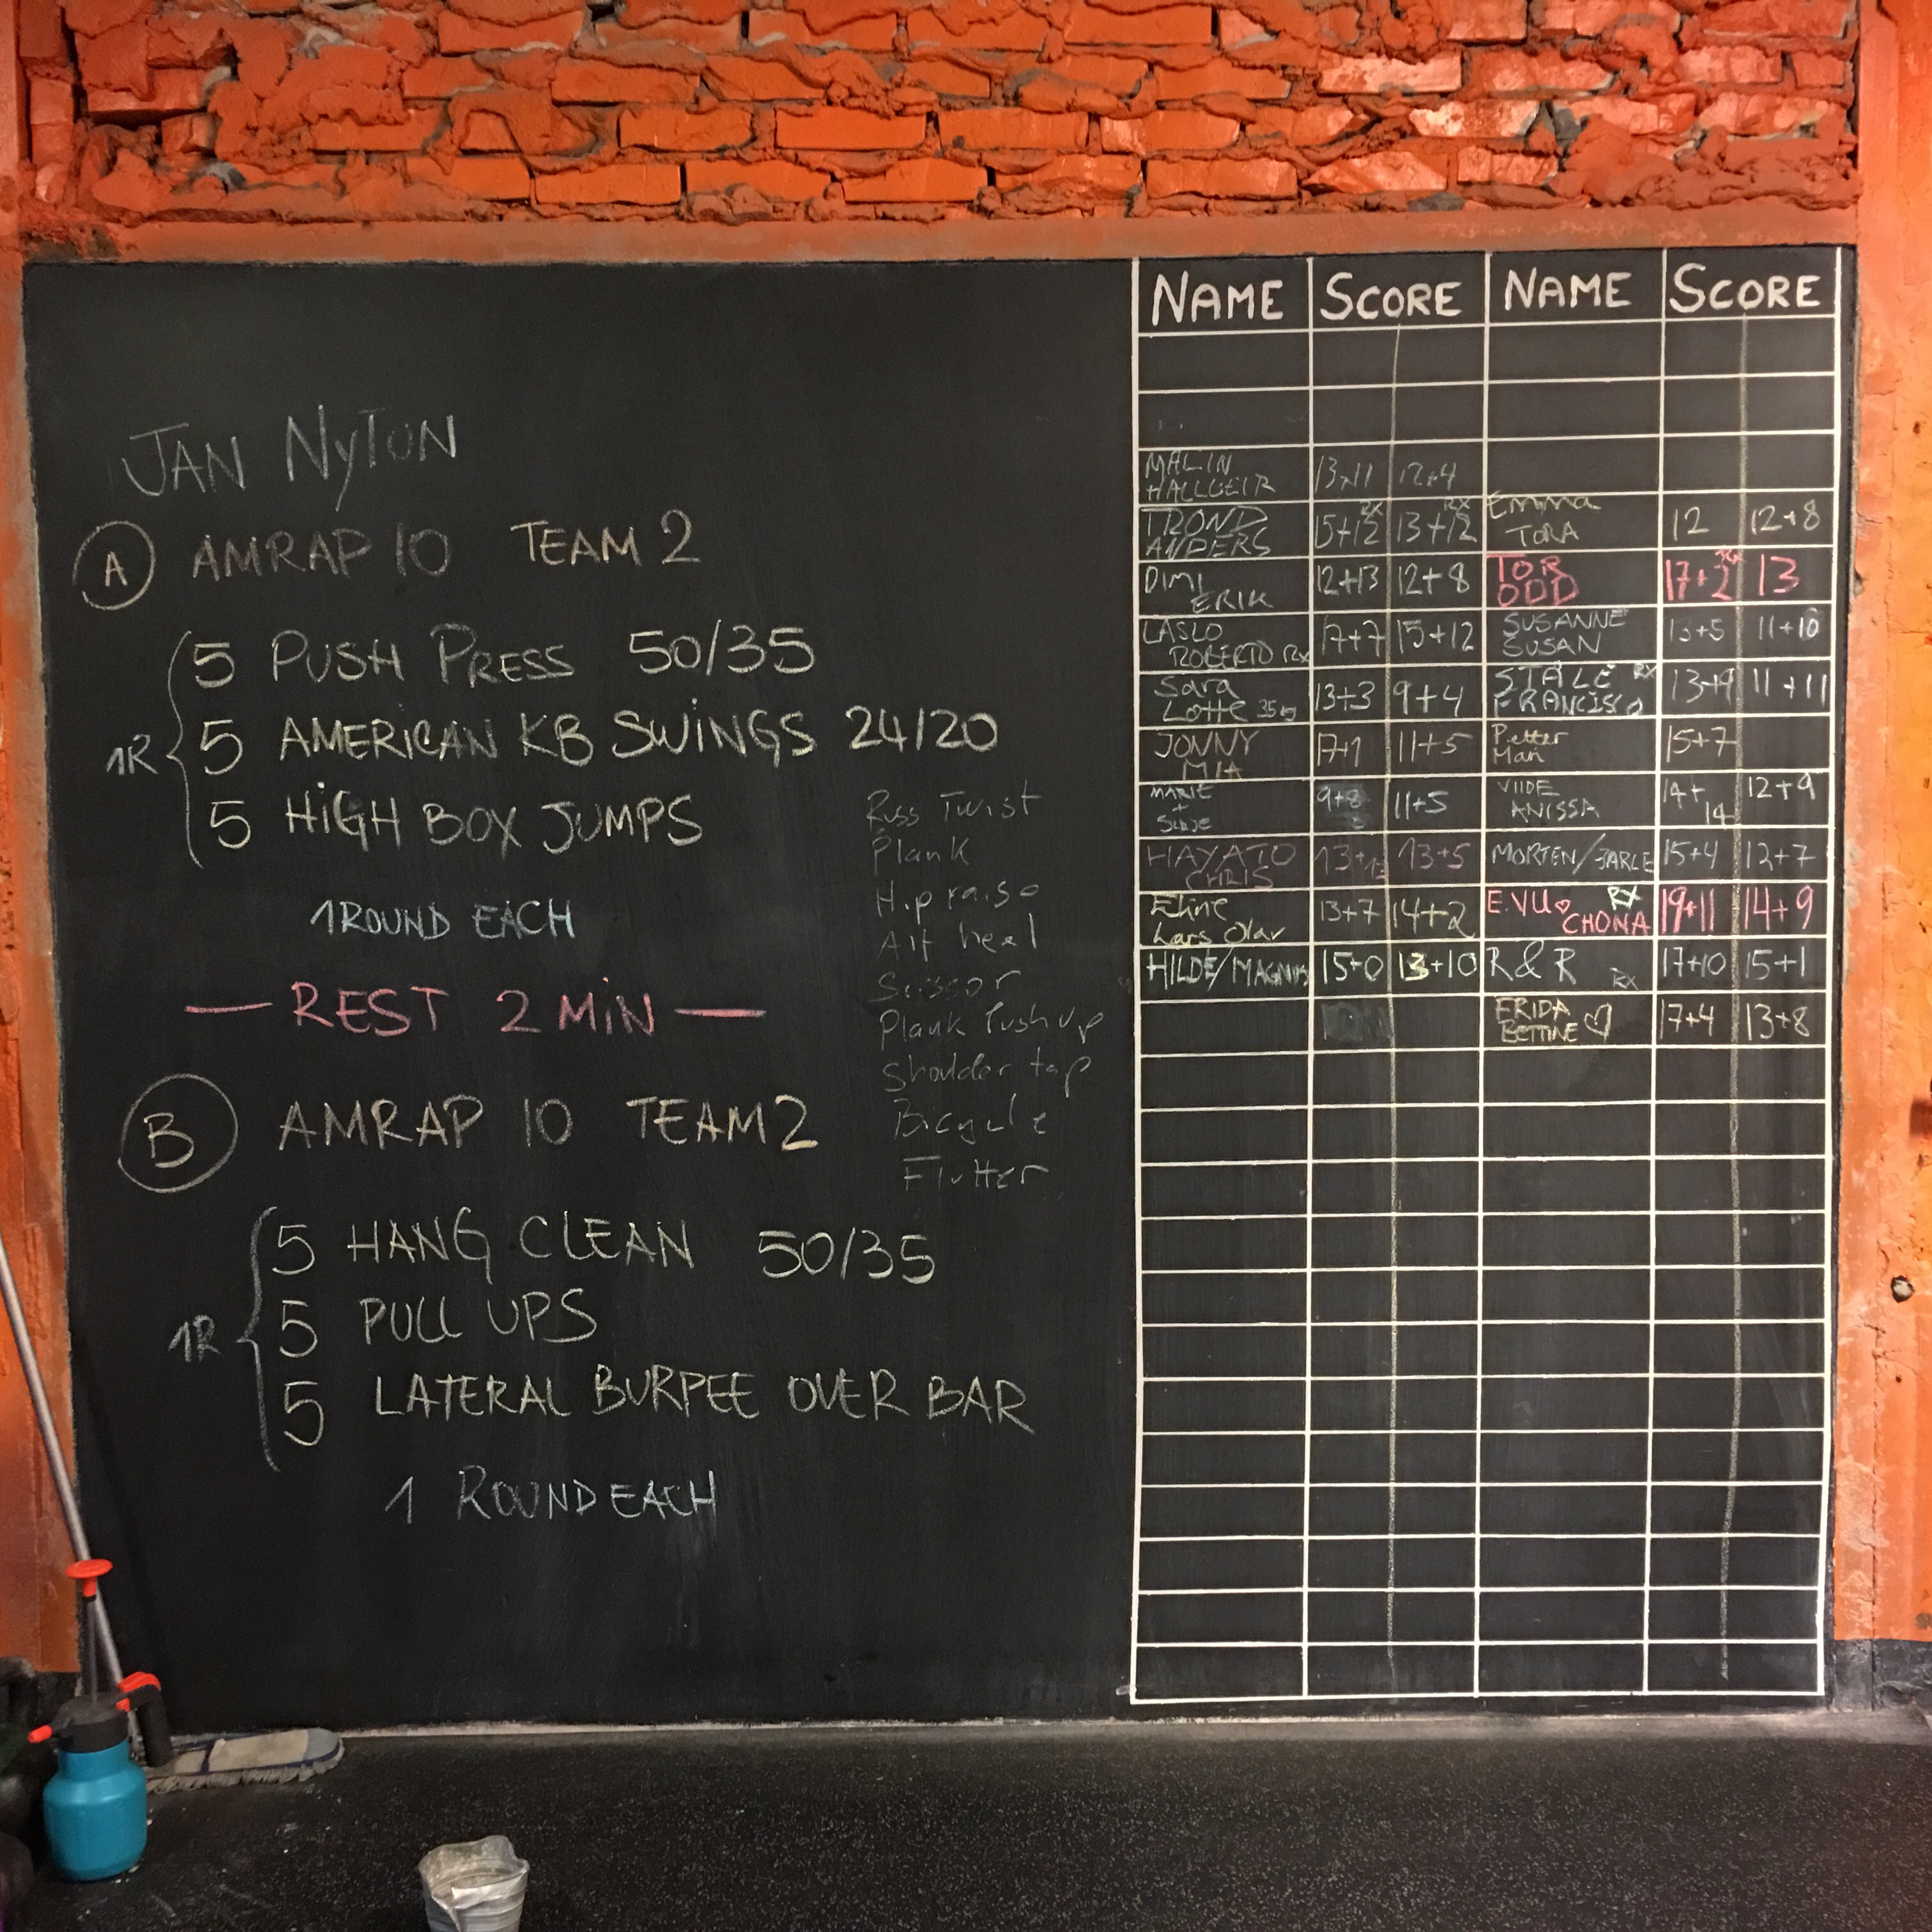 JAN NYTUN
A AMRAP 10 TEAM 2
1R
5 PUSH PRESS 50/35
5 AMERICAN KB SWINGS 24/20
5 HIGH BOX JUMPS
1 ROUND EACH
— REST 2 MIN —
B AMRAP 10 TEAM 2
1R
5 HANG CLEAN 50/35
5 PULL UPS
5 LATERAL BURPEE OVER BAR
1 ROUND EACH
Russ Twist
Plank
Hip raise
Alt heel
Scissor
Plank Push up
Shoulder tap
Bicycle
Flutter
NAME SCORE NAME SCORE
MALIN
HALLGEIR 13+11 12+4
TROND
ANDERS 15+12 RX 13+12 RX
Emma
TORA 12 12+8
DIMI
ERIK 12+13 12+8
TOR
ODD 17+2 13
LASLO
ROBERTO RX 17+7 15+12
SUSANNE
SUSAN 13+5 11+10
Sara
Lotte 13+3 9+4
STÅLE RX
FRANCISCO 13+9 11+11
JONNY
MIA 17+1 11+5
Petter
Mari 15+7
MARIE
+
9+8 11+5
VIIDE
ANISSA 14+14 12+9
HAYATO
CHRIS 13+13 13+5
MORTEN/JARLE 15+4 12+7
Eline
Lars Olav 13+7 14+2
E.VU ♡ RX
CHONA 19+11 14+9
HILDE/MAGNUS 15+0 13+10
R&R RX 17+10 15+1
FRIDA
BETTINE ♡ 17+4 13+8